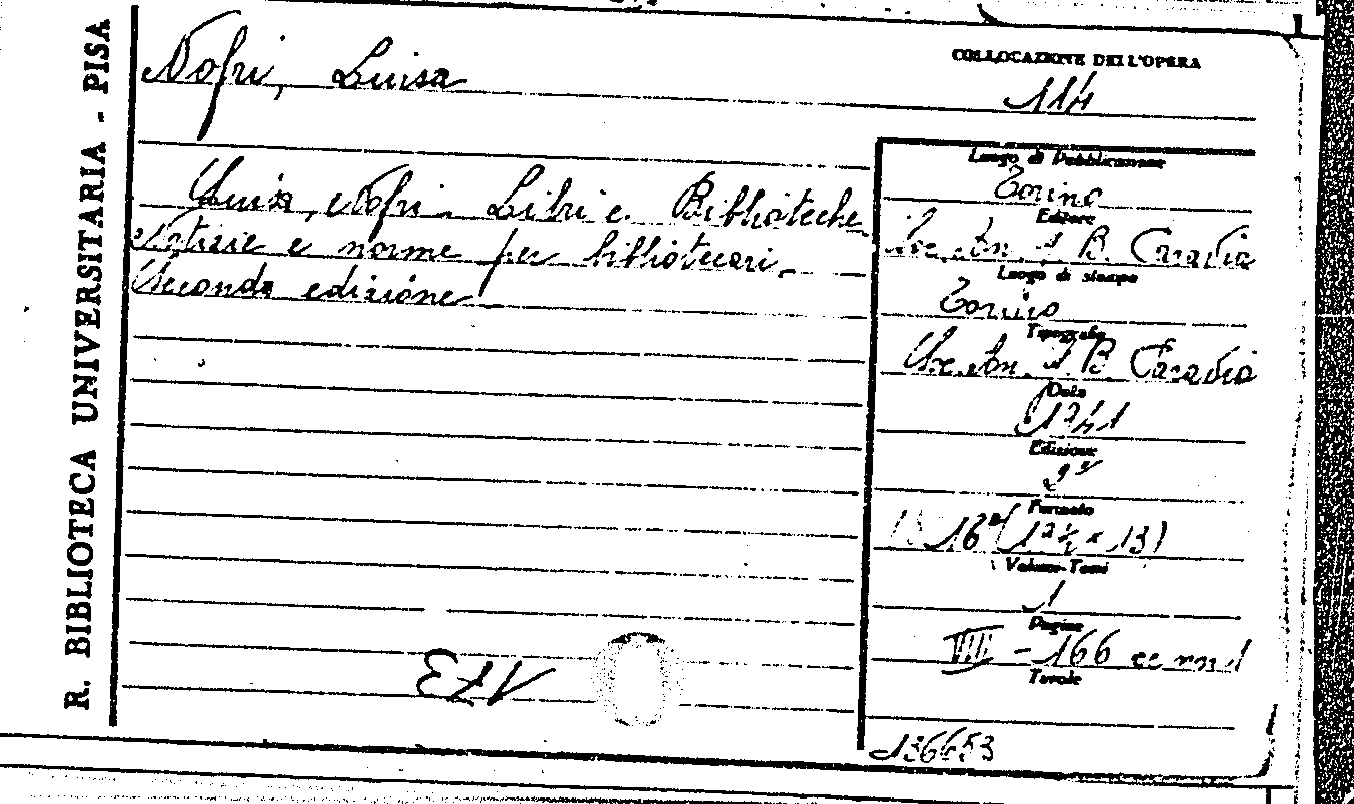 R. BIBLIOTECA UNIVERSITARIA - PISA
Nofri, Luisa
COLLOCAZIONE DELL'OPERA
114
Luisa Nofri - Libri e Biblioteche
Notizie e norme per bibliotecari.
Seconda edizione
Luogo di Pubblicazione
Torino
Editore
Soc. An. G. B. Paravia
Luogo di stampa
Torino
Tipografo
Soc. An. G. B. Paravia
Data
1941
Edizione
2ª
Formato
16° (19 ½ x 13)
Volumi-Tomi
1
Pagine
VIII - 166
Tavole
136653